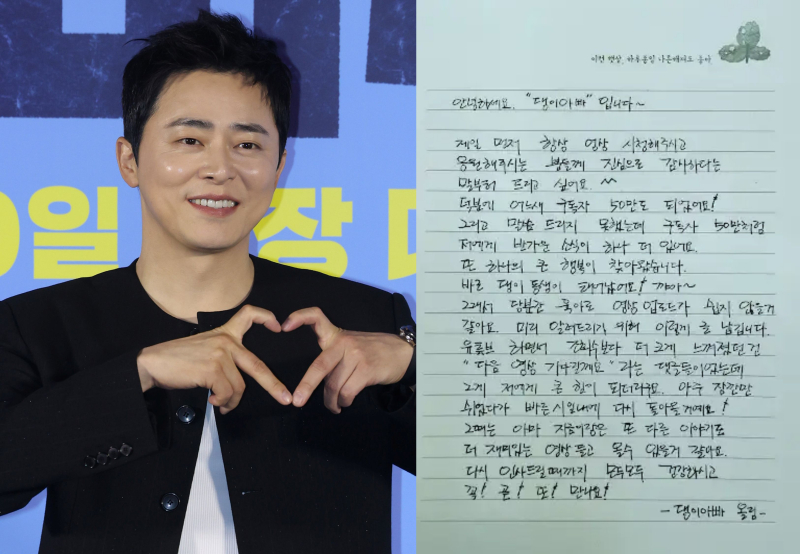 일
장
이런 명상, 하루종일 나른해져도 좋아
안녕하세요. "댕이아빠" 입니다~
제일 먼저 항상 영상 시청해주시고
응원해주시는 분들께 진심으로 감사하다는
말부터 드리고 싶어요 ^^
덕분에 어느새 구독자 50만도 되었어요!
그리고 말씀 드리지 못했는데 구독자 50만처럼
저에게 반가운 소식이 하나 더 있어요.
또 하나의 큰 행복이 찾아왔습니다.
바로 댕이 동생이 태어났어요! 꺄아~
그래서 당분간 육아로 영상 업로드가 쉽지 않을거
같아요. 미리 알려드리기 위해 이렇게 글 남깁니다.
유튜브 하면서 조회수보다 더 크게 느껴졌던 건
"다음 영상 기다릴게요" 라는 댓글들이었는데
그게 저에게 큰 힘이 되더라구요. 아주 잠깐만
쉬었다가 빠른시일내에 다시 돌아올게요!
그때는 아마 지금이랑은 또 다른 이야기로
더 재미있는 영상 들고 올수 있을거 같아요.
다시 인사드릴때까지 모두모두 건강하시고
꼭! 곧! 또! 만나요!
- 댕이아빠 올림 -